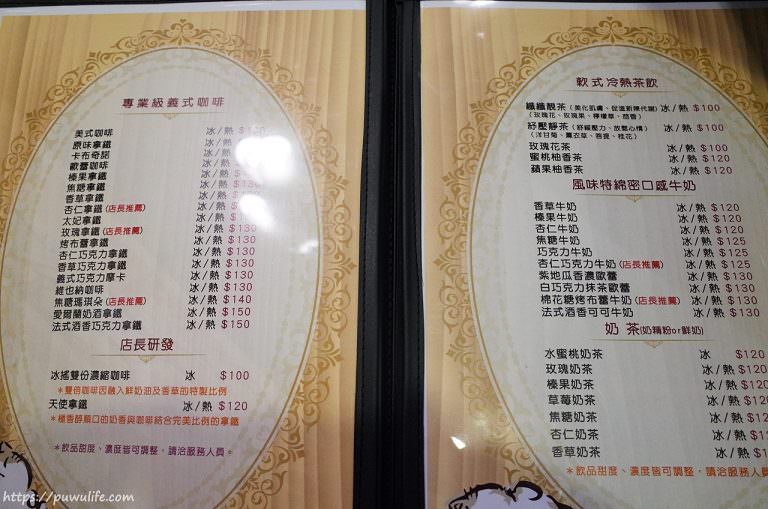 專業級義式咖啡
美式咖啡 冰/熱
原味拿鐵 冰/熱
卡布奇諾 冰/熱
歐蕾咖啡 冰/熱
榛果拿鐵 冰/熱
焦糖拿鐵 冰/熱 $130
香草拿鐵 冰/熱 $130
杏仁拿鐵(店長推薦) 冰/熱 $130
太妃拿鐵 冰/熱 $130
玫瑰拿鐵(店長推薦) 冰/熱 $130
烤布蕾拿鐵 冰/熱 $130
杏仁巧克力拿鐵 冰/熱 $130
香草巧克力拿鐵 冰/熱 $130
義式巧克力摩卡 冰/熱 $130
維也納咖啡 冰/熱 $130
焦糖瑪琪朵(店長推薦) 冰/熱 $140
愛爾蘭奶酒拿鐵 冰/熱 $150
法式酒香巧克力拿鐵 冰/熱 $150
店長研發
冰搖雙份濃縮咖啡 冰 $100
＊雙倍咖啡因融入鮮奶油及香草的特製比例
天使拿鐵 冰/熱 $120
＊極香醇順口的奶香與咖啡結合完美比例的拿鐵
＊飲品甜度、濃度皆可調整，請洽服務人員。
軟式冷熱茶飲
纖纖靚茶(美化肌膚、促進新陳代謝) 冰/熱 $100
(玫瑰花、玫瑰果、檸檬草、茴香)
紓壓靜茶(紓緩壓力、放鬆心情) 冰/熱 $100
(洋甘菊、薰衣草、菩提、桂花)
玫瑰花茶 冰/熱 $100
蜜桃柚香茶 冰/熱 $120
蘋果柚香茶 冰/熱 $120
風味特綿密口感牛奶
香草牛奶 冰/熱 $120
榛果牛奶 冰/熱 $120
杏仁牛奶 冰/熱 $120
焦糖牛奶 冰/熱 $125
巧克力牛奶 冰/熱 $125
杏仁巧克力牛奶(店長推薦) 冰/熱 $125
紫地瓜香濃歐蕾 冰/熱 $130
白巧克力抹茶歐蕾 冰/熱 $130
棉花糖烤布蕾牛奶(店長推薦) 冰/熱 $130
法式酒香可可牛奶 冰/熱 $130
奶 茶(奶精粉or鮮奶)
水蜜桃奶茶 冰 $120
玫瑰奶茶 冰/熱 $120
榛果奶茶 冰/熱 $120
草莓奶茶 冰/熱 $120
焦糖奶茶 冰/熱 $120
杏仁奶茶 冰/熱 $120
香草奶茶 冰/熱 $120
＊飲品甜度、濃度皆可調整，請洽服務人員
https://puwulife.com